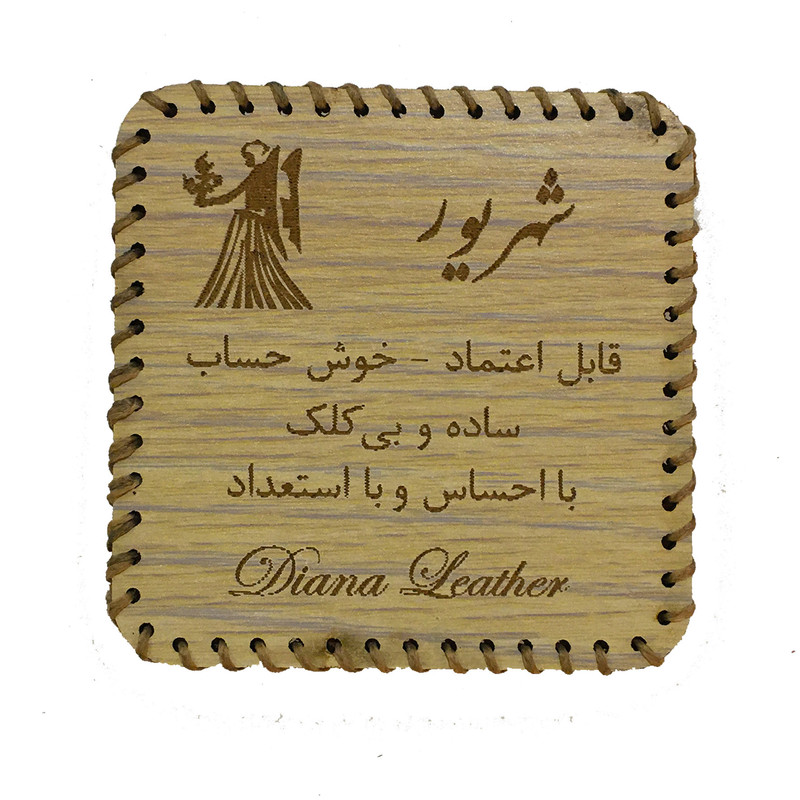 شهریور
قابل اعتماد - خوش حساب
ساده و بی‌کلک
با احساس و با استعداد
Diana Leather